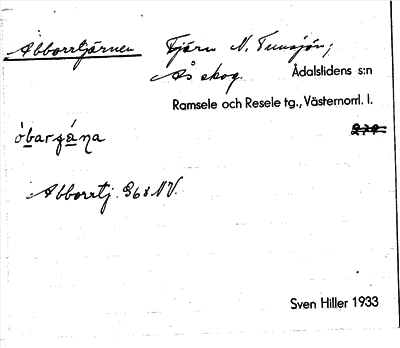 Abborrtjärnen Tjärn N. Tunsjön,
Ås skog. Ådalslidens s:n
Ramsele och Resele tg., Västernorrl. l.
Abborrtj. 36 NV.
Sven Hiller 1933